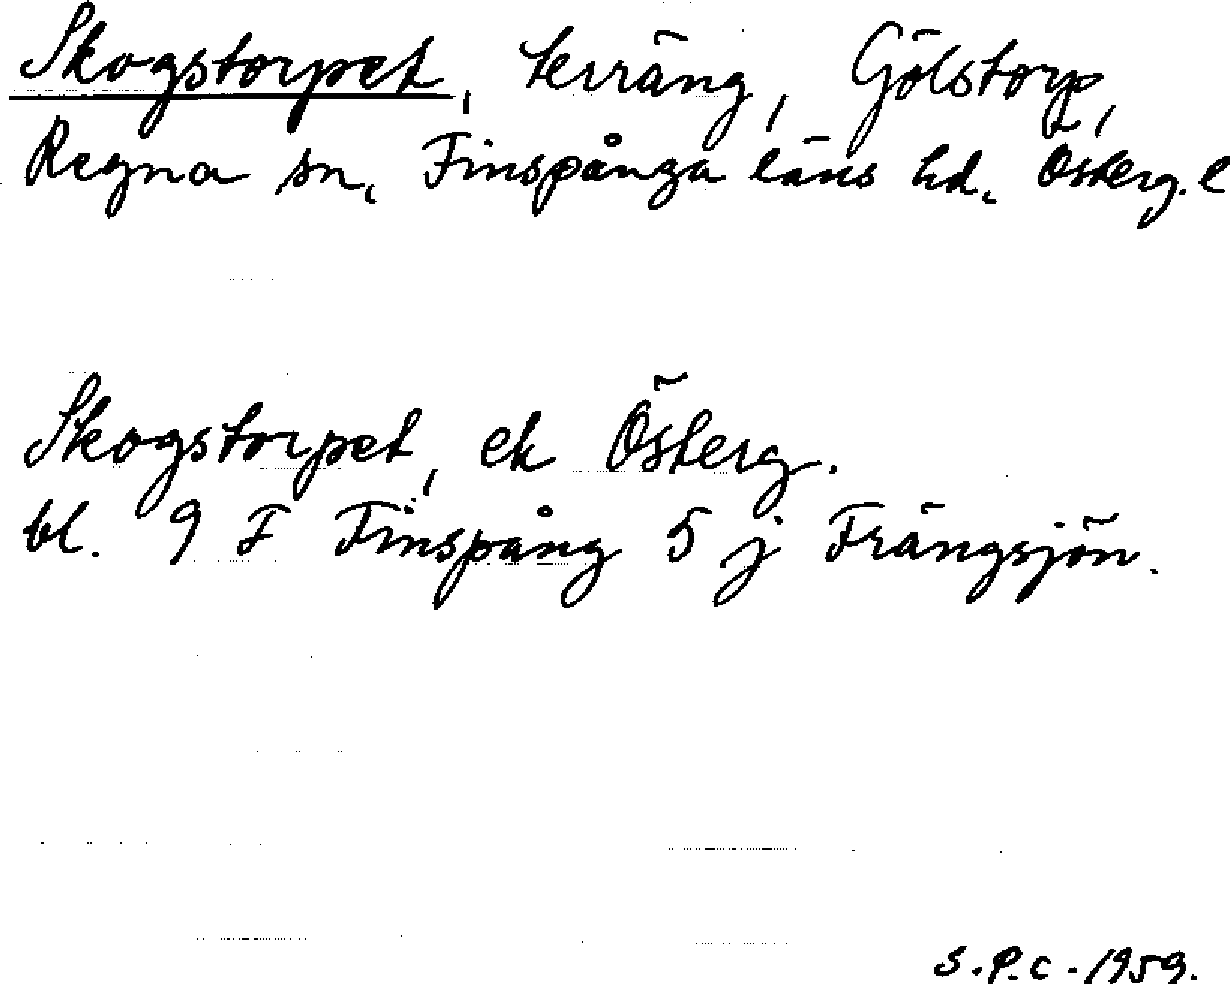 Skogstorpet, terräng, Gölstorp,
Regna sn, Finspånga läns hd. Österg. l
Skogstorpet, ek Österg.
bl. 9 F Finspång 5 j Frängsjön.
S.P.C. 1959.